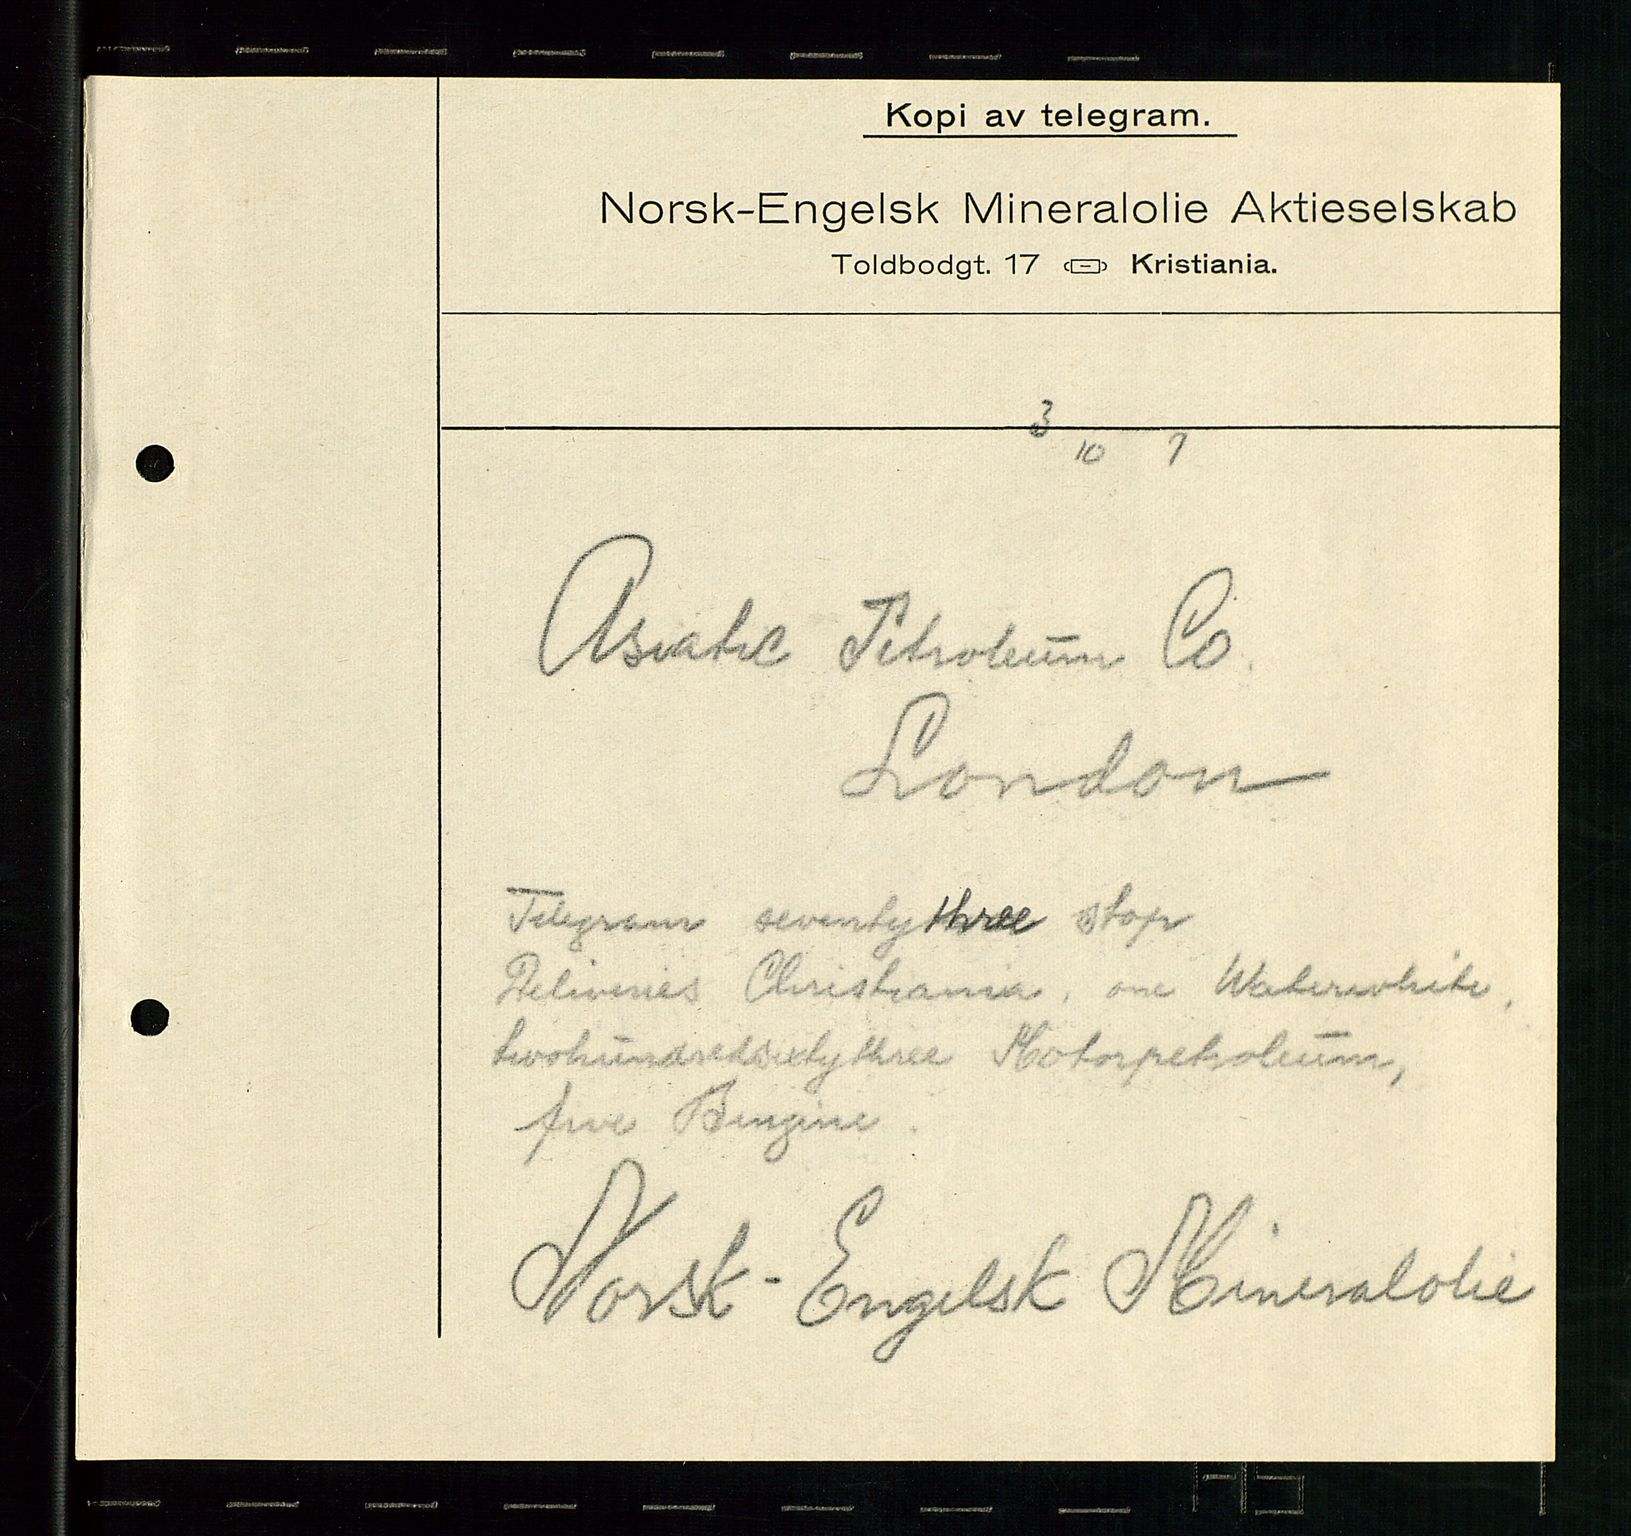 Kopi av telegram.
Norsk-Engelsk Mineralolie Aktieselskab
Toldbodgt. 17 Kristiania.
3
10 7
Asiatic Petroleum Co.
London
Telegram seventythree stop
Deliveries Christiania, one Waterwhite,
twohundredsixtythree Motorpetroleum,
five Benzine.
Norsk-Engelsk Mineralolie